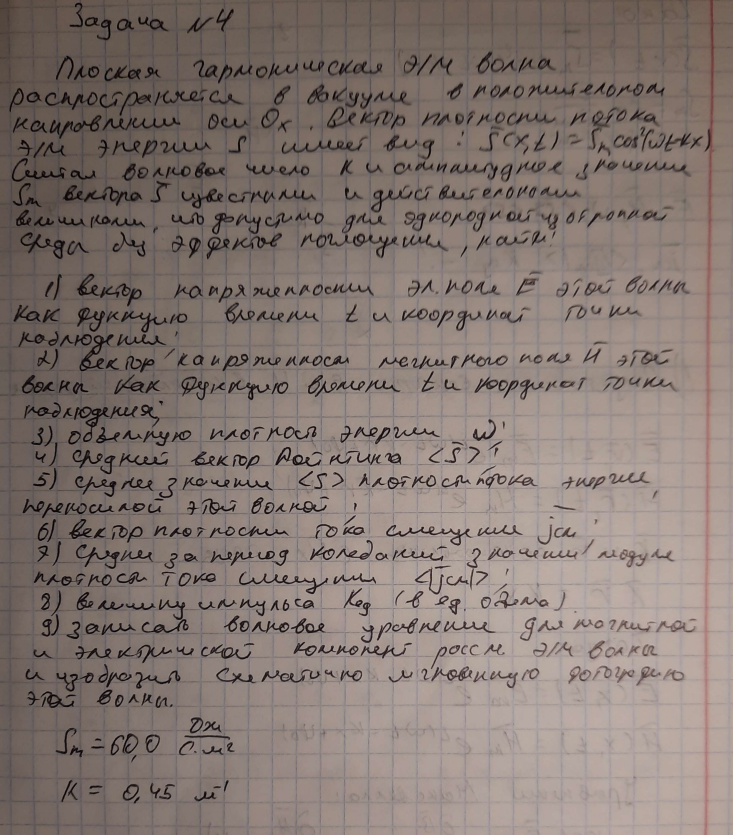 Задача №4
Плоская гармоническая э/м волна
распространяется в вакууме в положительном
направлении оси Ox. Вектор плотности потока
э/м энергии S имеет вид: S̄(x,t) = S̄m cos²(ωt-kx)
Считая волновое число k и амплитудное значение
Sm вектора S̄ известными и действительными
величинами, что допустимо для однородной изотропной
среды без эффектов поглощения, найти:
1) вектор напряженности эл. поля Ē этой волны
как функцию времени t и координат точки
наблюдения;
2) вектор напряженности магнитного поля H̄ этой
волны как функцию времени t и координат точки
наблюдения;
3) объемную плотность энергии ω;
4) средний вектор Пойнтинга <S̄>;
5) среднее значение <S> плотности потока энергии,
переносимой этой волной;
6) вектор плотности тока смещения j̄см;
7) среднее за период колебаний значение модуля
плотности тока смещения <|jсм|>;
8) величину импульса Kед (в ед. объема).
9) записать волновое уравнение для магнитной
и электрической компонент рассм э/м волны
и изобразить схематично мгновенную фотографию
этой волны.
Sm = 60,0 Дж/с·м²
K = 0,45 м⁻¹